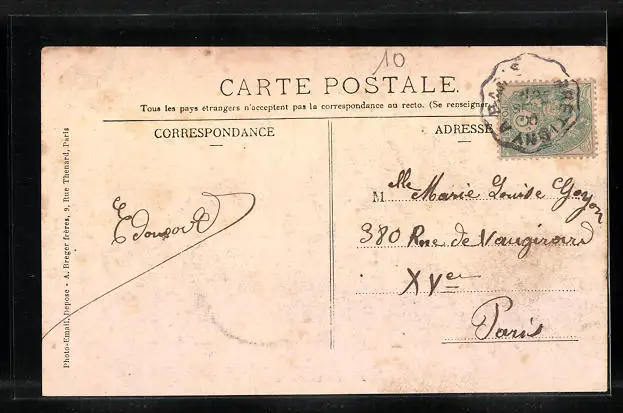 10
CARTE POSTALE.
Tous les pays étrangers n'acceptent pas la correspondance au recto. (Se renseigner
CORRESPONDANCE
ADRESSE
Edouard
Mlle Marie Louise Goyon
380 Rue de Vaugirard
XVe
Paris
Photo-Email. Dépose - A. Breger frères, 9, Rue Thenard, Paris